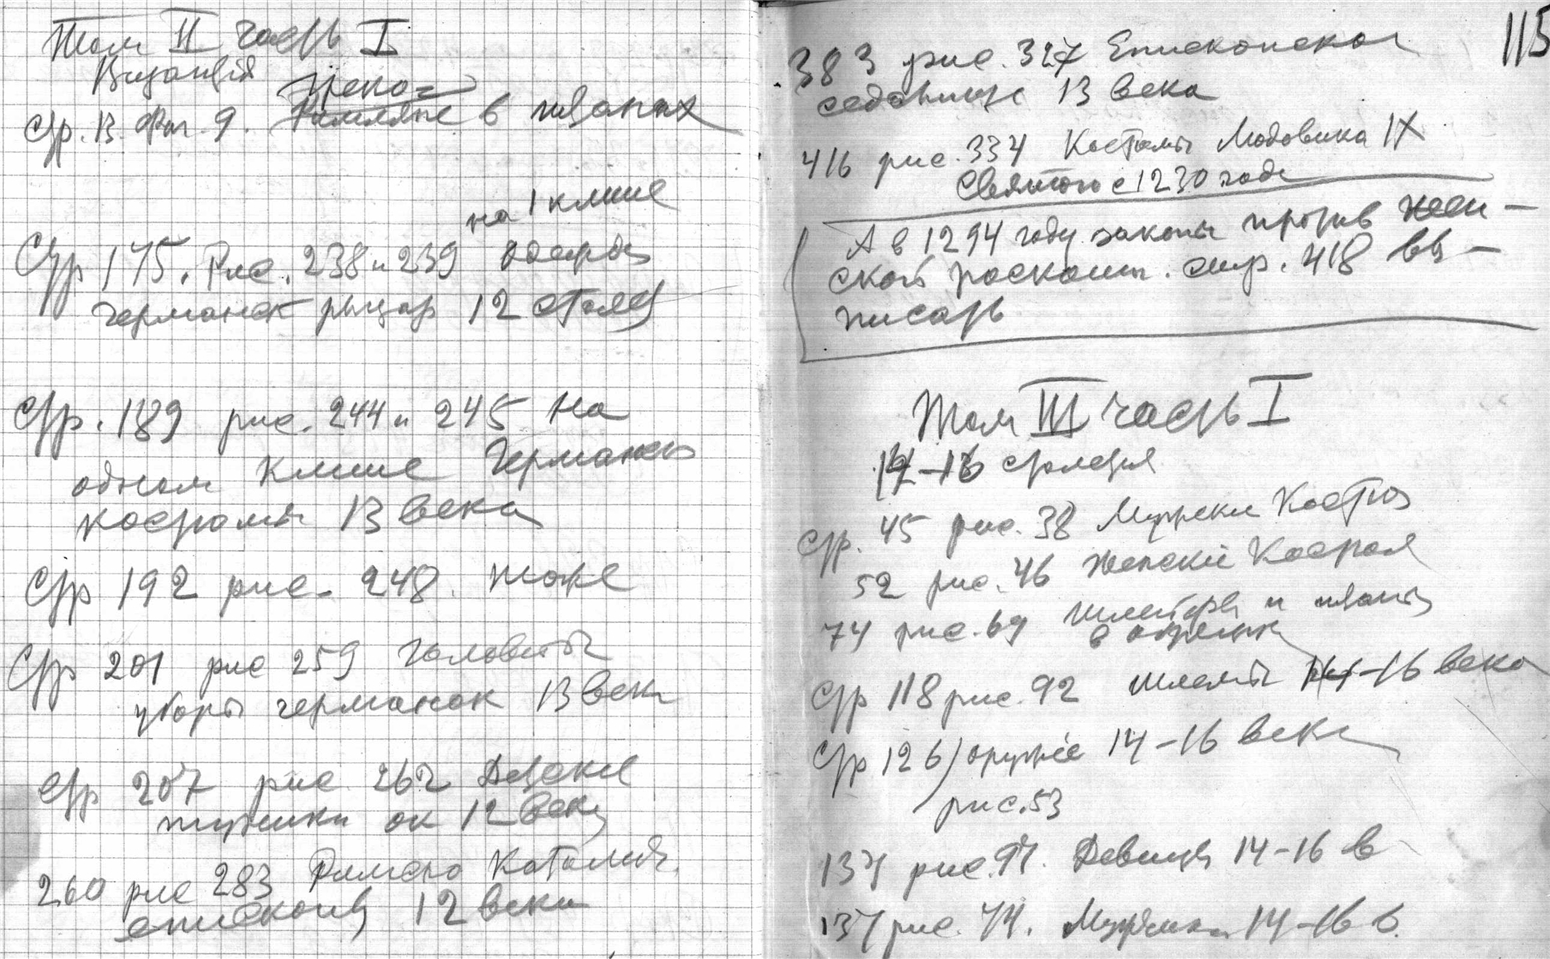 Том II часть I
Византия
Греко=
Стр. 13. Фиг. 9. Римляне в плащах
на 1 клише
Стр 175. Рис. 238 и 239 одежды
германск рыцар 12 столет
Стр. 189 рис. 244 и 245 на
одном клише Германск
костюмы 13 века
Стр 192 рис. 248. тоже
Стр 201 рис 259 головные
уборы германок 13 век
Стр 207 рис 262 Датские
туники ок 12 века
260 рис 283 Римско Католич.
епископы 12 века
115
383 рис. 327 Епископское
седалище 13 века
416 рис. 334 Костюмы Людовика IX
Святого с 1230 года
А в 1294 году законы против жен-
ской роскоши. стр. 418 вы-
писать
Том III часть I
14-16 столетия
Стр. 45 рис. 38 Мужски Костюм
52 рис. 46 женский Костюм
74 рис. 69 и плащ
Стр 118 рис. 92 шлемы 14-16 века
Стр 126) оружие 14-16 века
рис. 53
137 рис. 97. Девицы 14-16 в
137 рис. 74. 14-16 в.